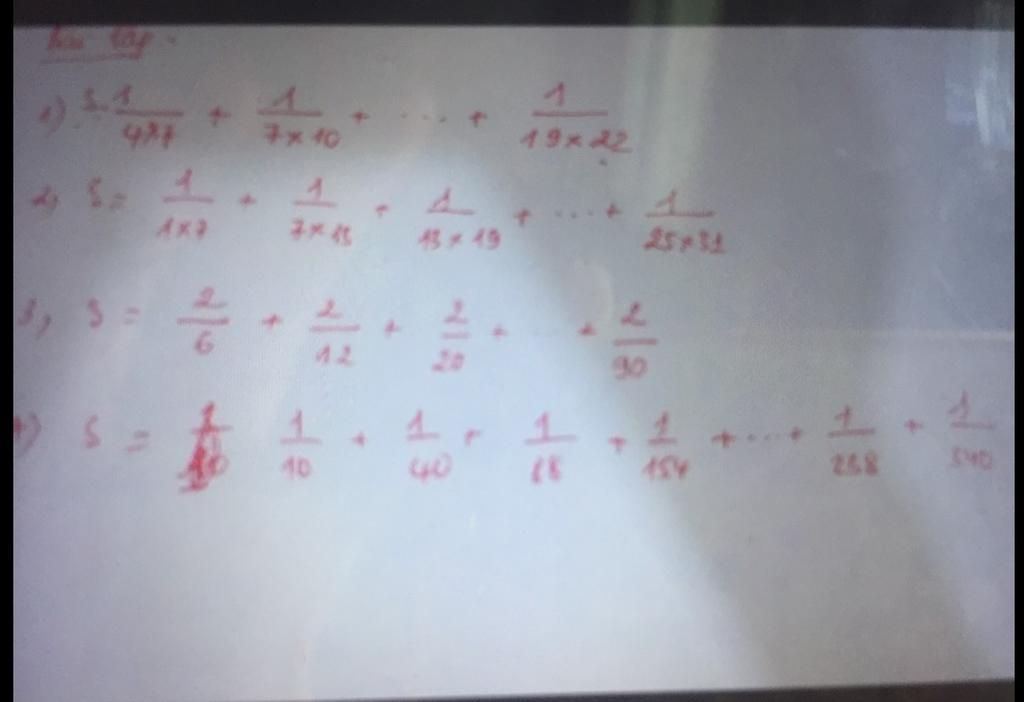 Bài tập.
1) S = 1/(4×7) + 1/(7×10) + ... + 1/(19×22)
2) S = 1/(1×7) + 1/(7×13) + 1/(13×19) + ... + 1/(25×31)
3) S = 2/6 + 2/12 + 2/20 + ... + 2/90
4) S = 1/10 + 1/40 + 1/88 + 1/154 + ... + 1/238 + 1/340